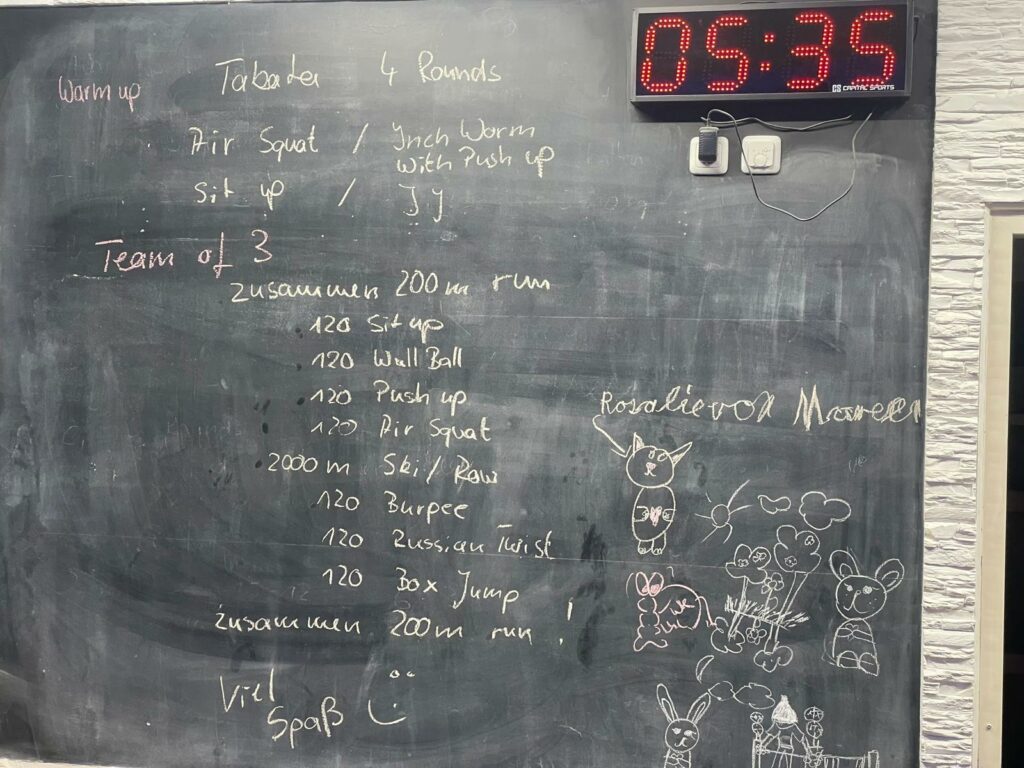 05:35
CAPITAL SPORTS
Warm up
Tabata 4 Rounds
Air Squat / Inch Worm
with Push up
Sit up / JJ
Team of 3
zusammen 200m run
120 Sit up
120 Wall Ball
120 Push up
120 Air Squat
2000 m Ski / Row
120 Burpee
120 Russian Twist
120 Box Jump
zusammen 200m run !
Viel
Spaß
Rosalie von